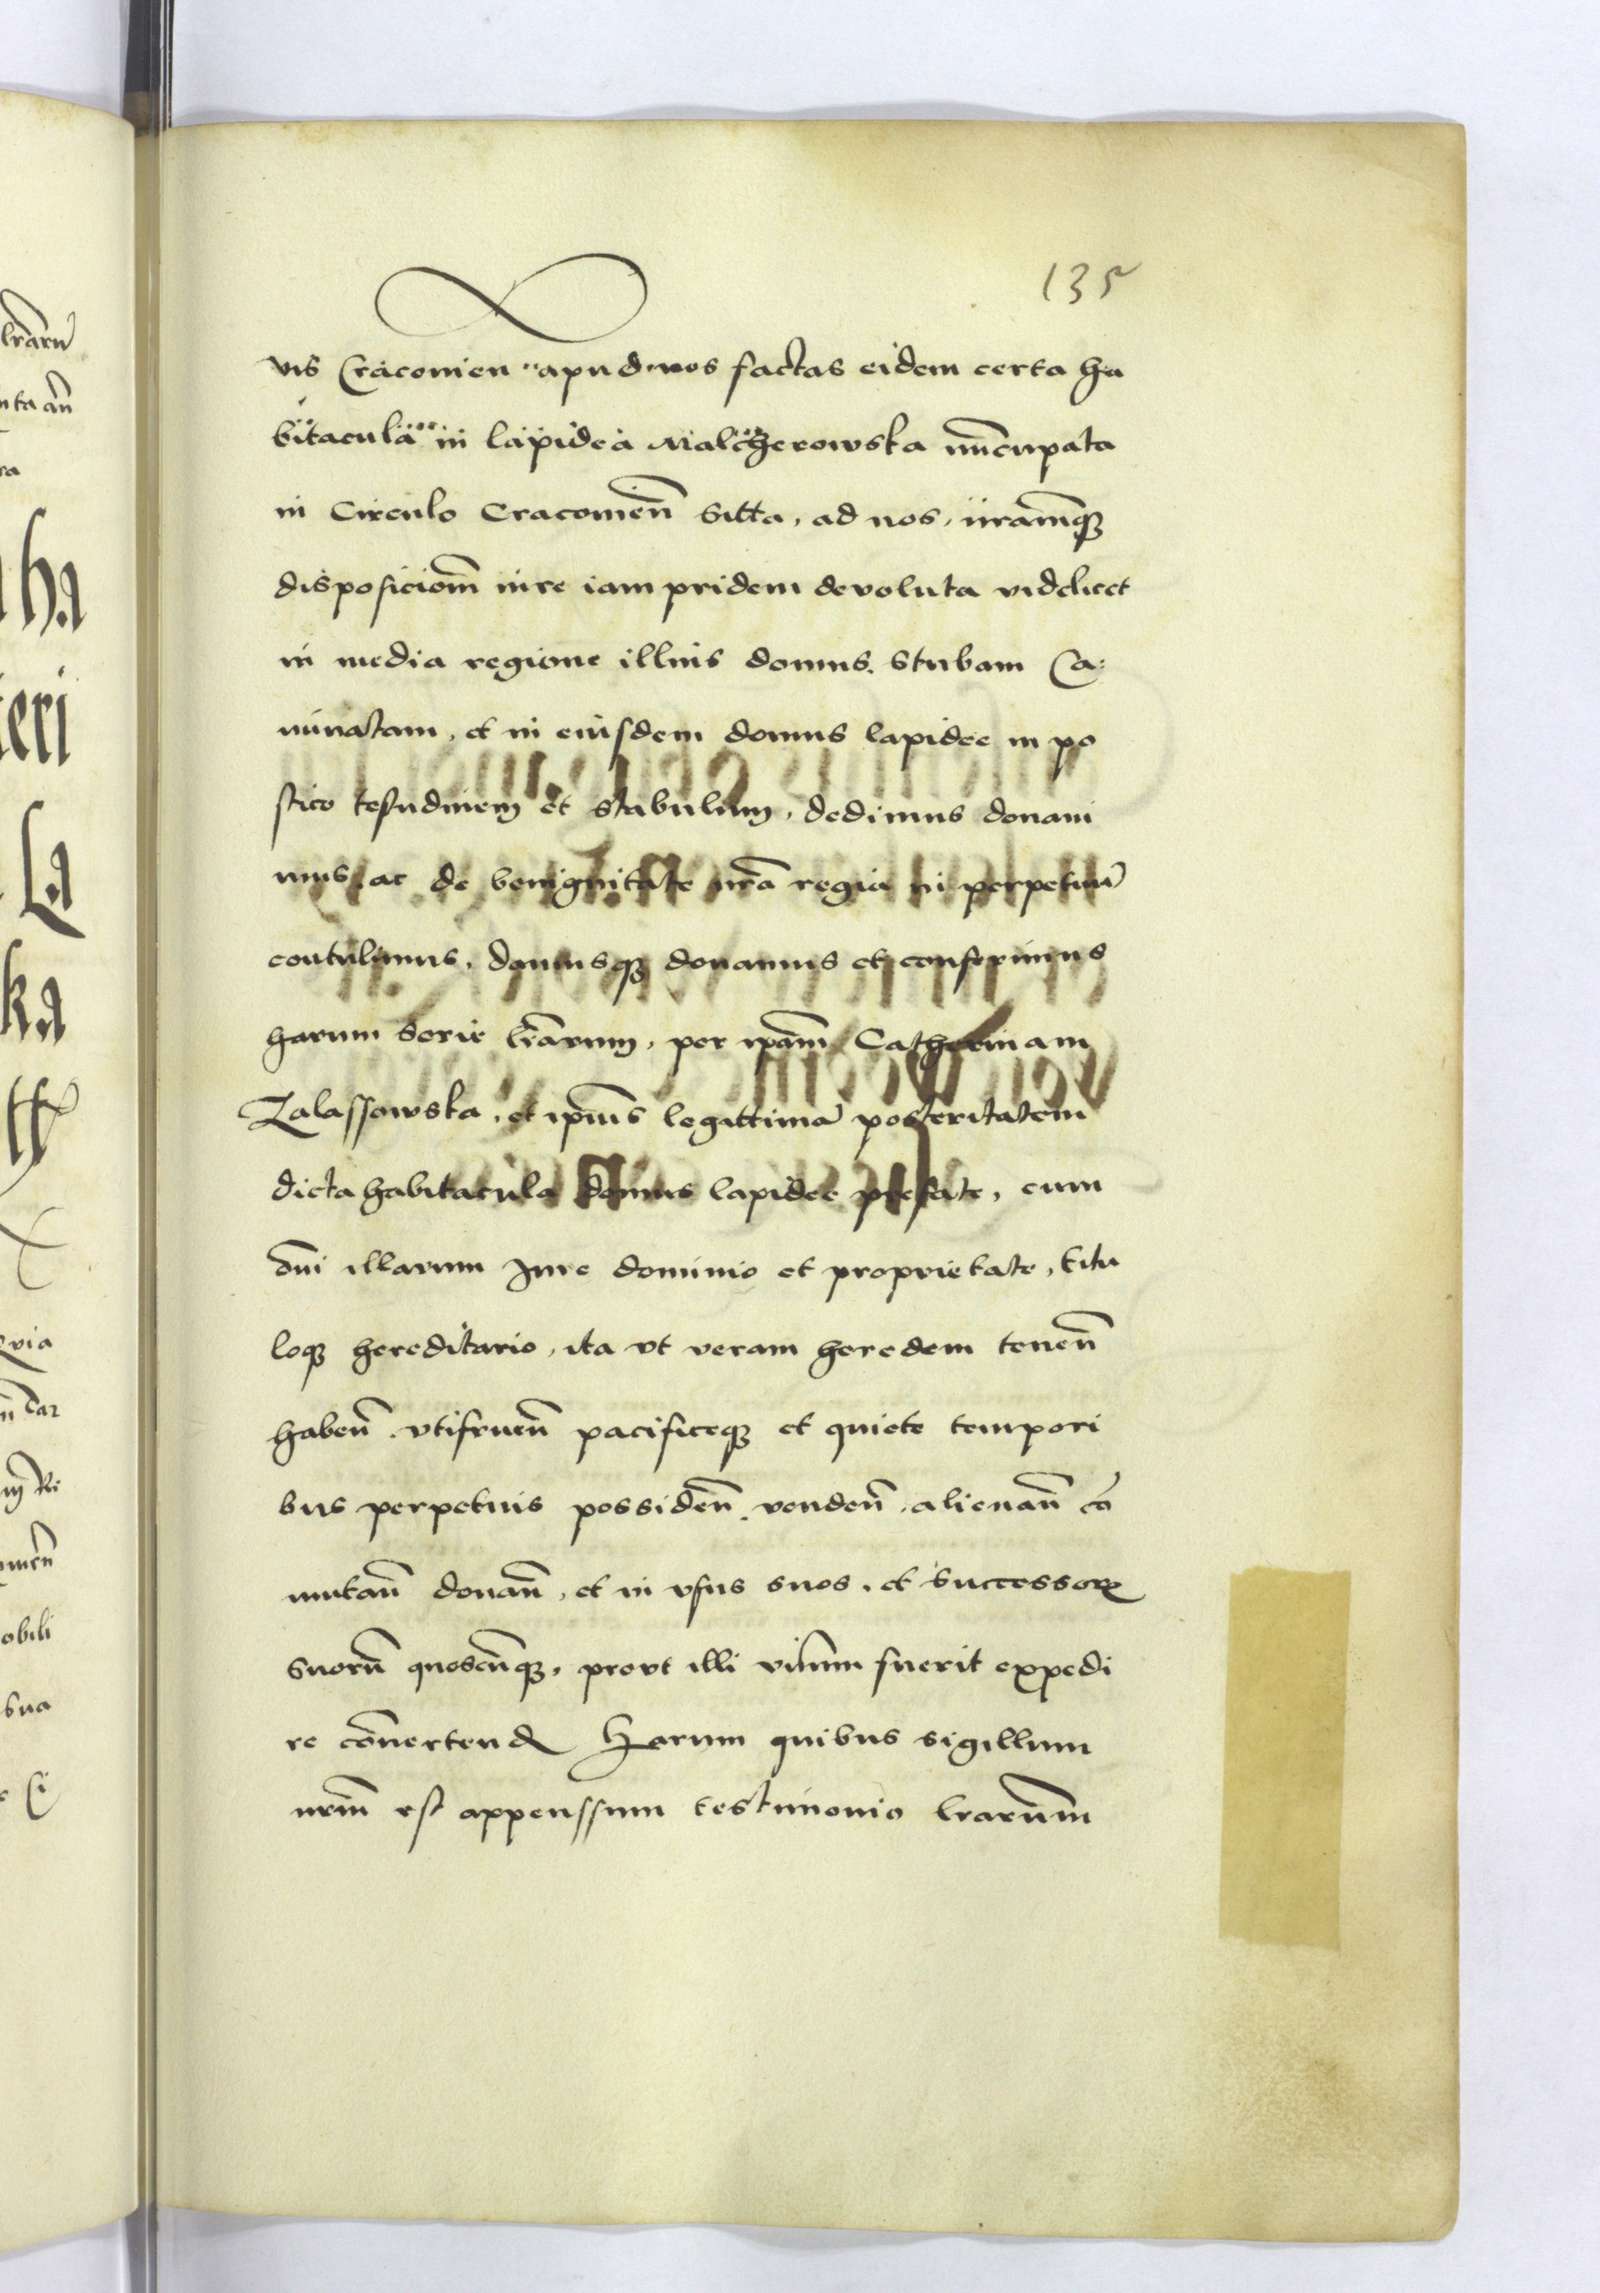 135
vis Cracovien apud nos factas eidem certa ha
bitacula in lapidea Malcherowska nūcupata
in Circulo Cracovieñ sitta, ad nos, nrāmqꝫ
disposicioēm iure iam pridem devoluta videlicet
in media regione illius domus. stubam Ca:
minatam, et in eiusdem domus lapidee in po
stico testudinem et stabulum, dedimus donavi
mus, ac de benignitate nrā regia in perpetuū
contulimus, damusqꝫ donamus et conferimus
harum serie lrārum, per ipām Catherinam
Zalassowska, et ipīus legittimā posteritatem
dicta habitacula domus lapidee prefate, cum
oīni illarum Iure dominio et proprietate, titu
loqꝫ hereditario, ita vt veram heredem teneñ
habeñ. vtifrueñ pacificeqꝫ et quiete tempori
bus perpetuis possideñ. vendeñ, alienañ cō
mutañ donañ, et in vsus suos, et successorꝝ
suorū quoscūqꝫ, provt illi visum fuerit expedi
re cōvertend Harum quibus sigillum
nrūm est appenssum testimonio lrārum